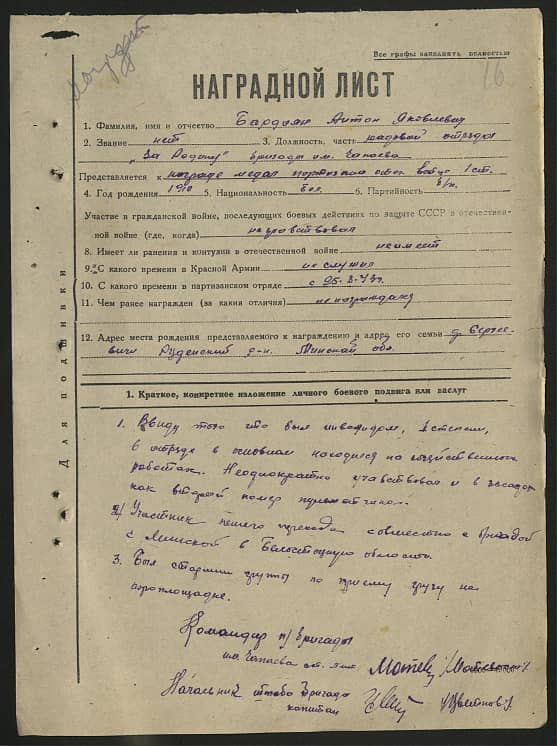 Все графы заполнять полностью
16
НАГРАДНОЙ ЛИСТ
1. Фамилия, имя и отчество Бардиян Антон Яковлевич
2. Звание нет 3. Должность, часть рядовой отряда
"За Родину" бригады им. Чапаева
Представляется к награде медал партизан отеч. войны 1 ст.
4. Год рождения 1910 5. Национальность бел. 6. Партийность б/п.
Участие в гражданской войне, последующих боевых действиях по защите СССР в отечествен-
ной войне (где, когда) не участвовал
8. Имеет ли ранения и контузии в отечественной войне не имеет
9. С какого времени в Красной Армии не служил
10. С какого времени в партизанском отряде с 25.3.43г.
11. Чем ранее награжден (за какия отличия) не награждался
12. Адрес места рождения представляемого к награждению и адрес его семьи д. Сергее-
вичи Руденский р-н. Минской обл.
Для подшивки
1. Краткое, конкретное изложение личного боевого подвига или заслуг
1. Ввиду того что был инвалидом, степени,
в отряде в основном находился на хозяйственных
работах. Неоднократно учавствовал и в засадах
как второй номер пулеметчика.
2) Участник пешего перехода совместно с бригадой
с Минской в Белостоцкую область.
3. Был старшим группы по приему грузу на
аэроплощадке.
Командир п/бригады
им. Чапаева ст. лит.
Начальник штаба бригады
капитан